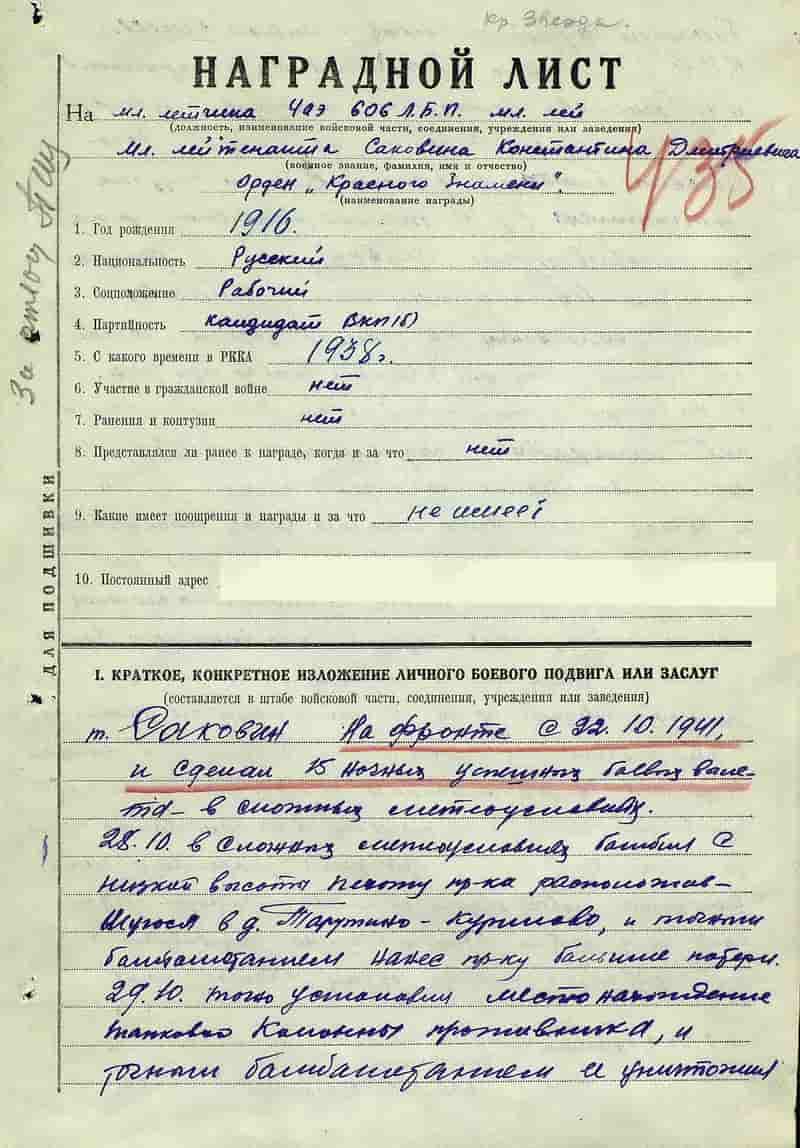 Кр. Звезда.
НАГРАДНОЙ ЛИСТ
На мл. летчика 4АЭ 606 Л.Б.П. мл. лей
(должность, наименование войсковой части, соединения, учреждения или заведения)
мл. лейтенанта Саковина Константина Дмитриевича
(военное звание, фамилия, имя и отчество)
Орден „Красного Знамени".
(наименование награды)
435
1. Год рождения 1916.
2. Национальность Русский
3. Соцположение Рабочий
4. Партийность кандидат ВКП(б)
5. С какого времени в РККА 1938 г.
6. Участие в гражданской войне нет
7. Ранения и контузии нет
8. Представлялся ли ранее к награде, когда и за что нет
9. Какие имеет поощрения и награды и за что не имеет
10. Постоянный адрес
ДЛЯ ПОДШИВКИ
I. КРАТКОЕ, КОНКРЕТНОЕ ИЗЛОЖЕНИЕ ЛИЧНОГО БОЕВОГО ПОДВИГА ИЛИ ЗАСЛУГ
(составляется в штабе войсковой части, соединения, учреждения или заведения)
т. Саковин На фронте с 22.10.1941,
и сделал 15 ночных успешных боевых выле-
та в сложных метеоусловиях.
28.10. в сложных метеоусловиях бомбил с
низкой высоты пехоту пр-ка расположив-
шуюся в д. Тарутино - Курилово, и точным
бомбометанием нанес пр-ку большие потери.
29.10. точно установил место нахождение
танковой колонны противника, и
точным бомбометанием ее уничтожил